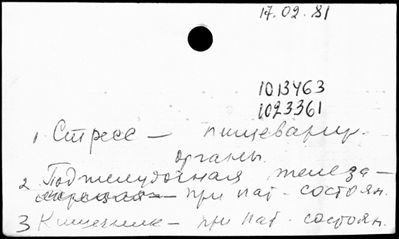 17.02.81
1013463
1023361
1 Стресс – пищеварит.
органы.
2 Поджелудочная железа –
при пат. состоян.
3 Кишечник – при пат. состоян.